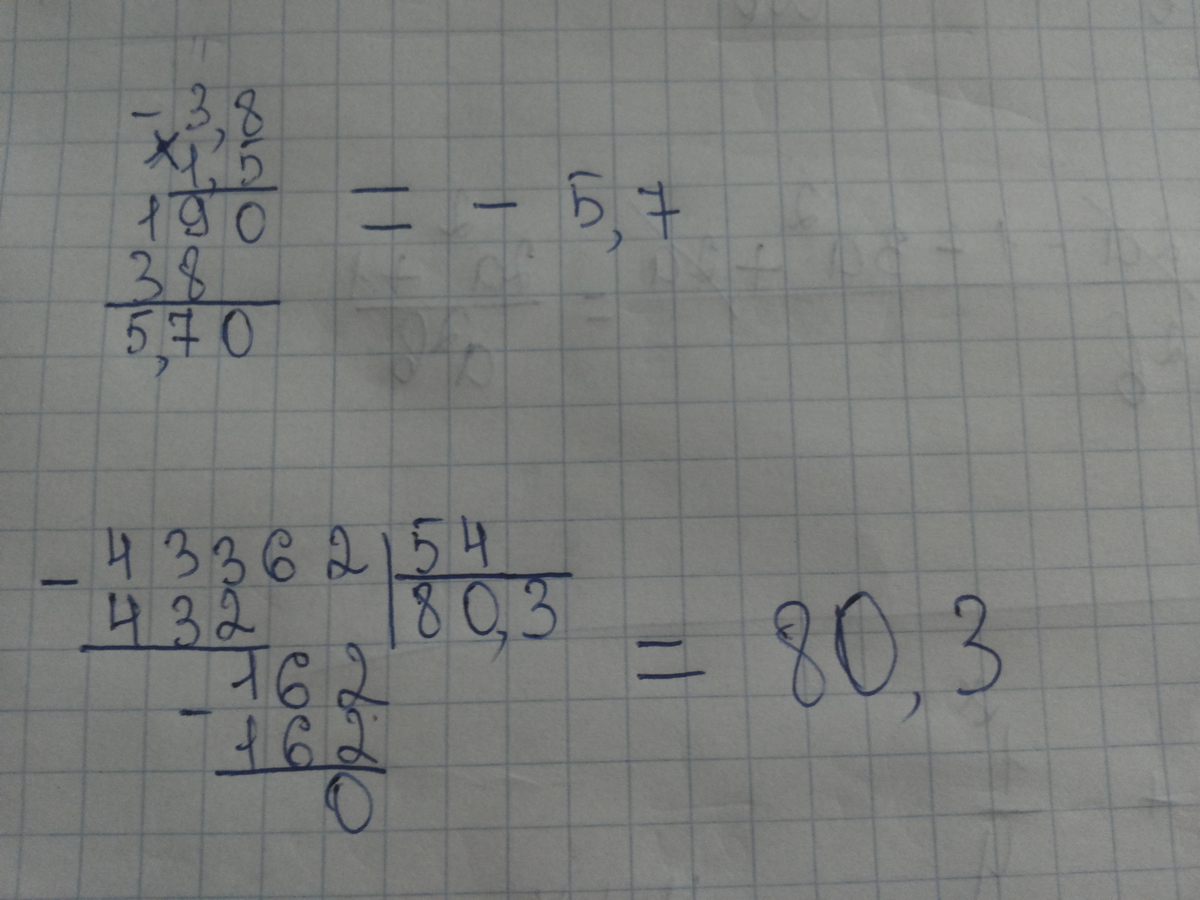 - 3,8
× 1,5
190 = - 5,7
38
5,70
- 43362 | 54
432 | 80,3
= 80,3
- 162
162
0